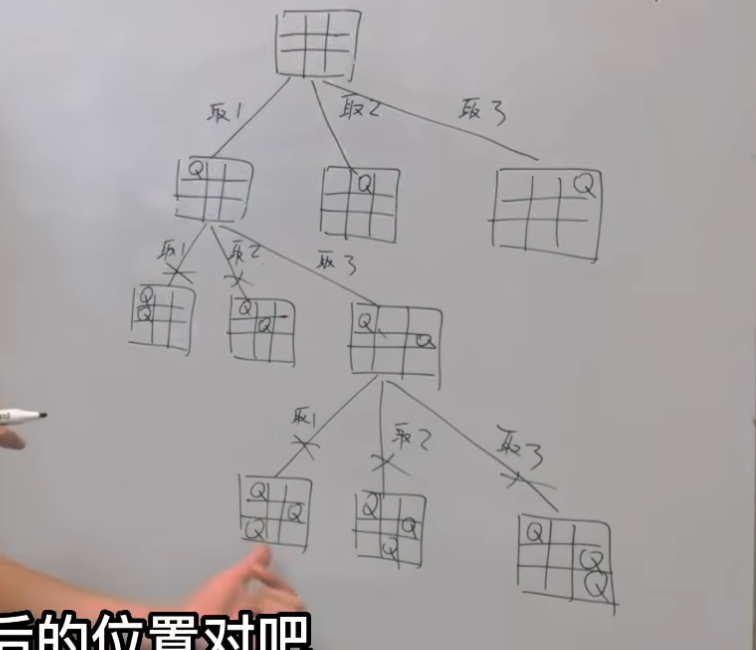 取1 取2 取3
Q Q Q
取1 取2 取3
Q
Q
Q
Q
Q
Q
取1 取2 取3
Q
Q
Q
Q
Q
Q
Q
Q
Q
后的位置对吧